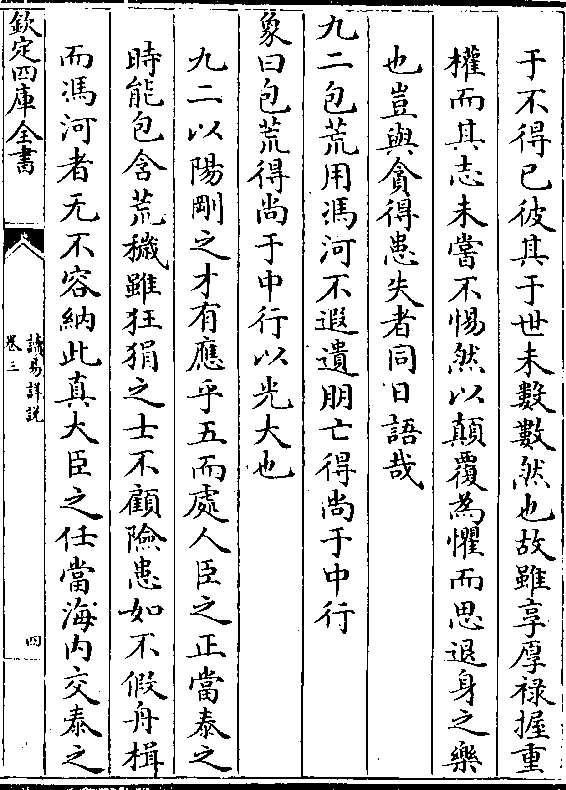 于不得已彼其于世未數數然也故雖享厚祿握重
權而其志未嘗不惕然以顛覆為懼而思退身之樂
也豈與貪得患失者同日語哉
九二包荒用馮河不遐遺朋亡得尚于中行
象曰包荒得尚于中行以光大也
九二以陽剛之才有應乎五而處人臣之正當泰之
時能包含荒穢雖狂狷之士不顧險患如不假舟楫
而馮河者无不容納此真大臣之任當海内交泰之
欽定四庫全書
讀易詳説
卷三
四